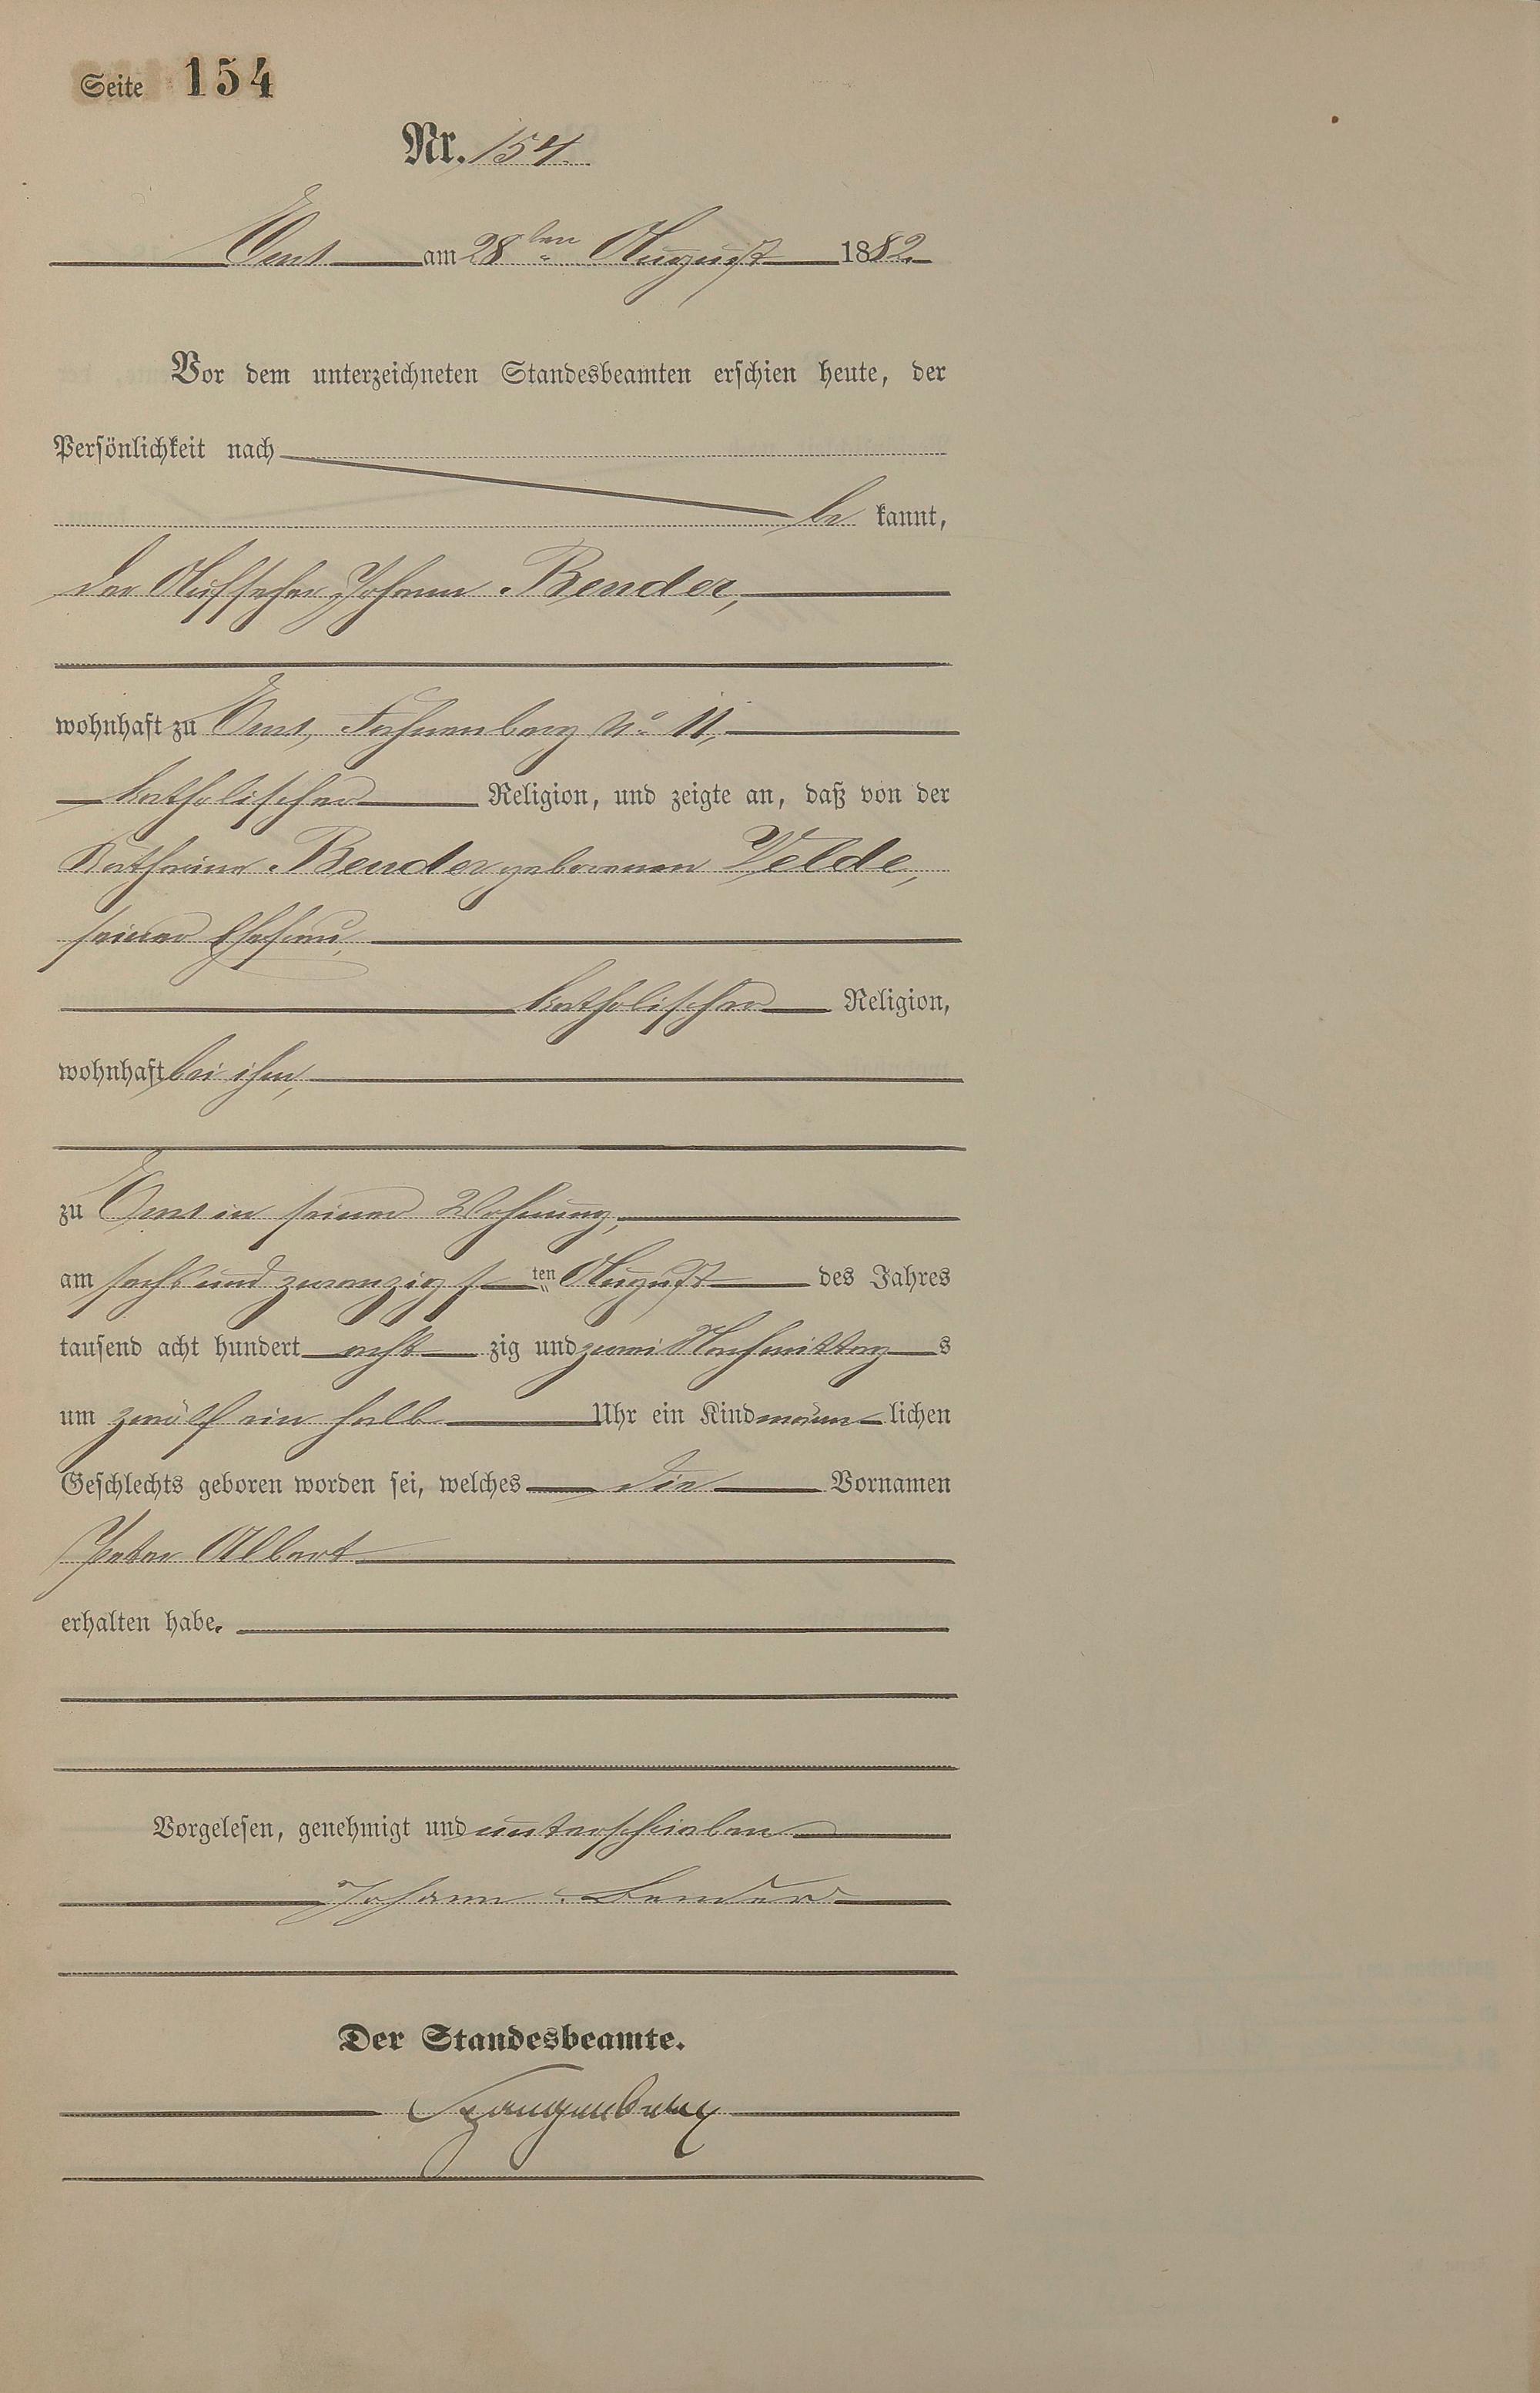 Seite 154
Nr. 154.
Ems am 28ten August 1882
Vor dem unterzeichneten Standesbeamten erschien heute, der
Persönlichkeit nach
be kannt,
der Aufseher Johann Bender,
wohnhaft zu Ems, No 11,
katholischer Religion, und zeigte an, daß von der
Katharina Bender geborenen Velde,
seiner Ehefrau,
katholischer Religion,
wohnhaft bei ihm,
zu Ems in seiner Wohnung,
am sechs und zwanzigsten August des Jahres
tausend acht hundert acht zig und zwei Nachmittags
um zwölf ein halb Uhr ein Kind männlichen
Geschlechts geboren worden sei, welches die Vornamen
Peter Albert
erhalten habe.
Vorgelesen, genehmigt und unterschrieben
Johann Bender
Der Standesbeamte.